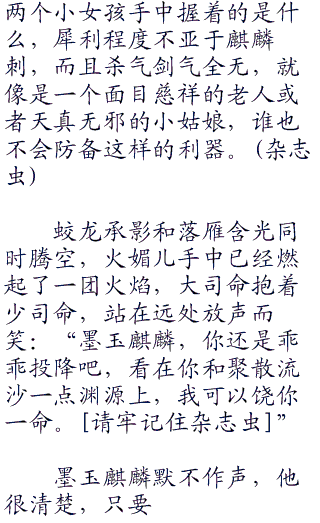 两个小女孩手中握着的是什
么，犀利程度不亚于麒麟
刺，而且杀气剑气全无，就
像是一个面目慈祥的老人或
者天真无邪的小姑娘，谁也
不会防备这样的利器。(杂志
虫)
蛟龙承影和落雁含光同
时腾空，火媚儿手中已经燃
起了一团火焰，大司命抱着
少司命，站在远处放声而
笑：“墨玉麒麟，你还是乖
乖投降吧，看在你和聚散流
沙一点渊源上，我可以饶你
一命。[请牢记住杂志虫]”
墨玉麒麟默不作声，他
很清楚，只要